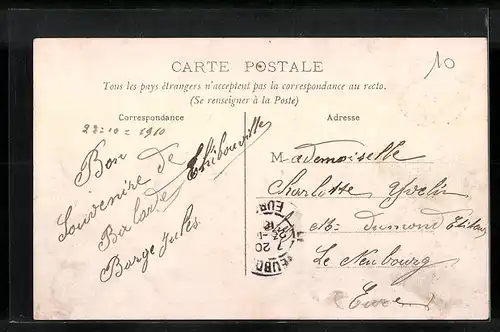 CARTE POSTALE
Tous les pays étrangers n'acceptent pas la correspondance au recto.
(Se renseigner à la Poste)
Correspondance
Adresse
10
22-10-1910
Bon
Souvenire de Thibouville
Barge Jules
Mademoiselle
Charlotte
Dumond
Le Neubourg
Eure